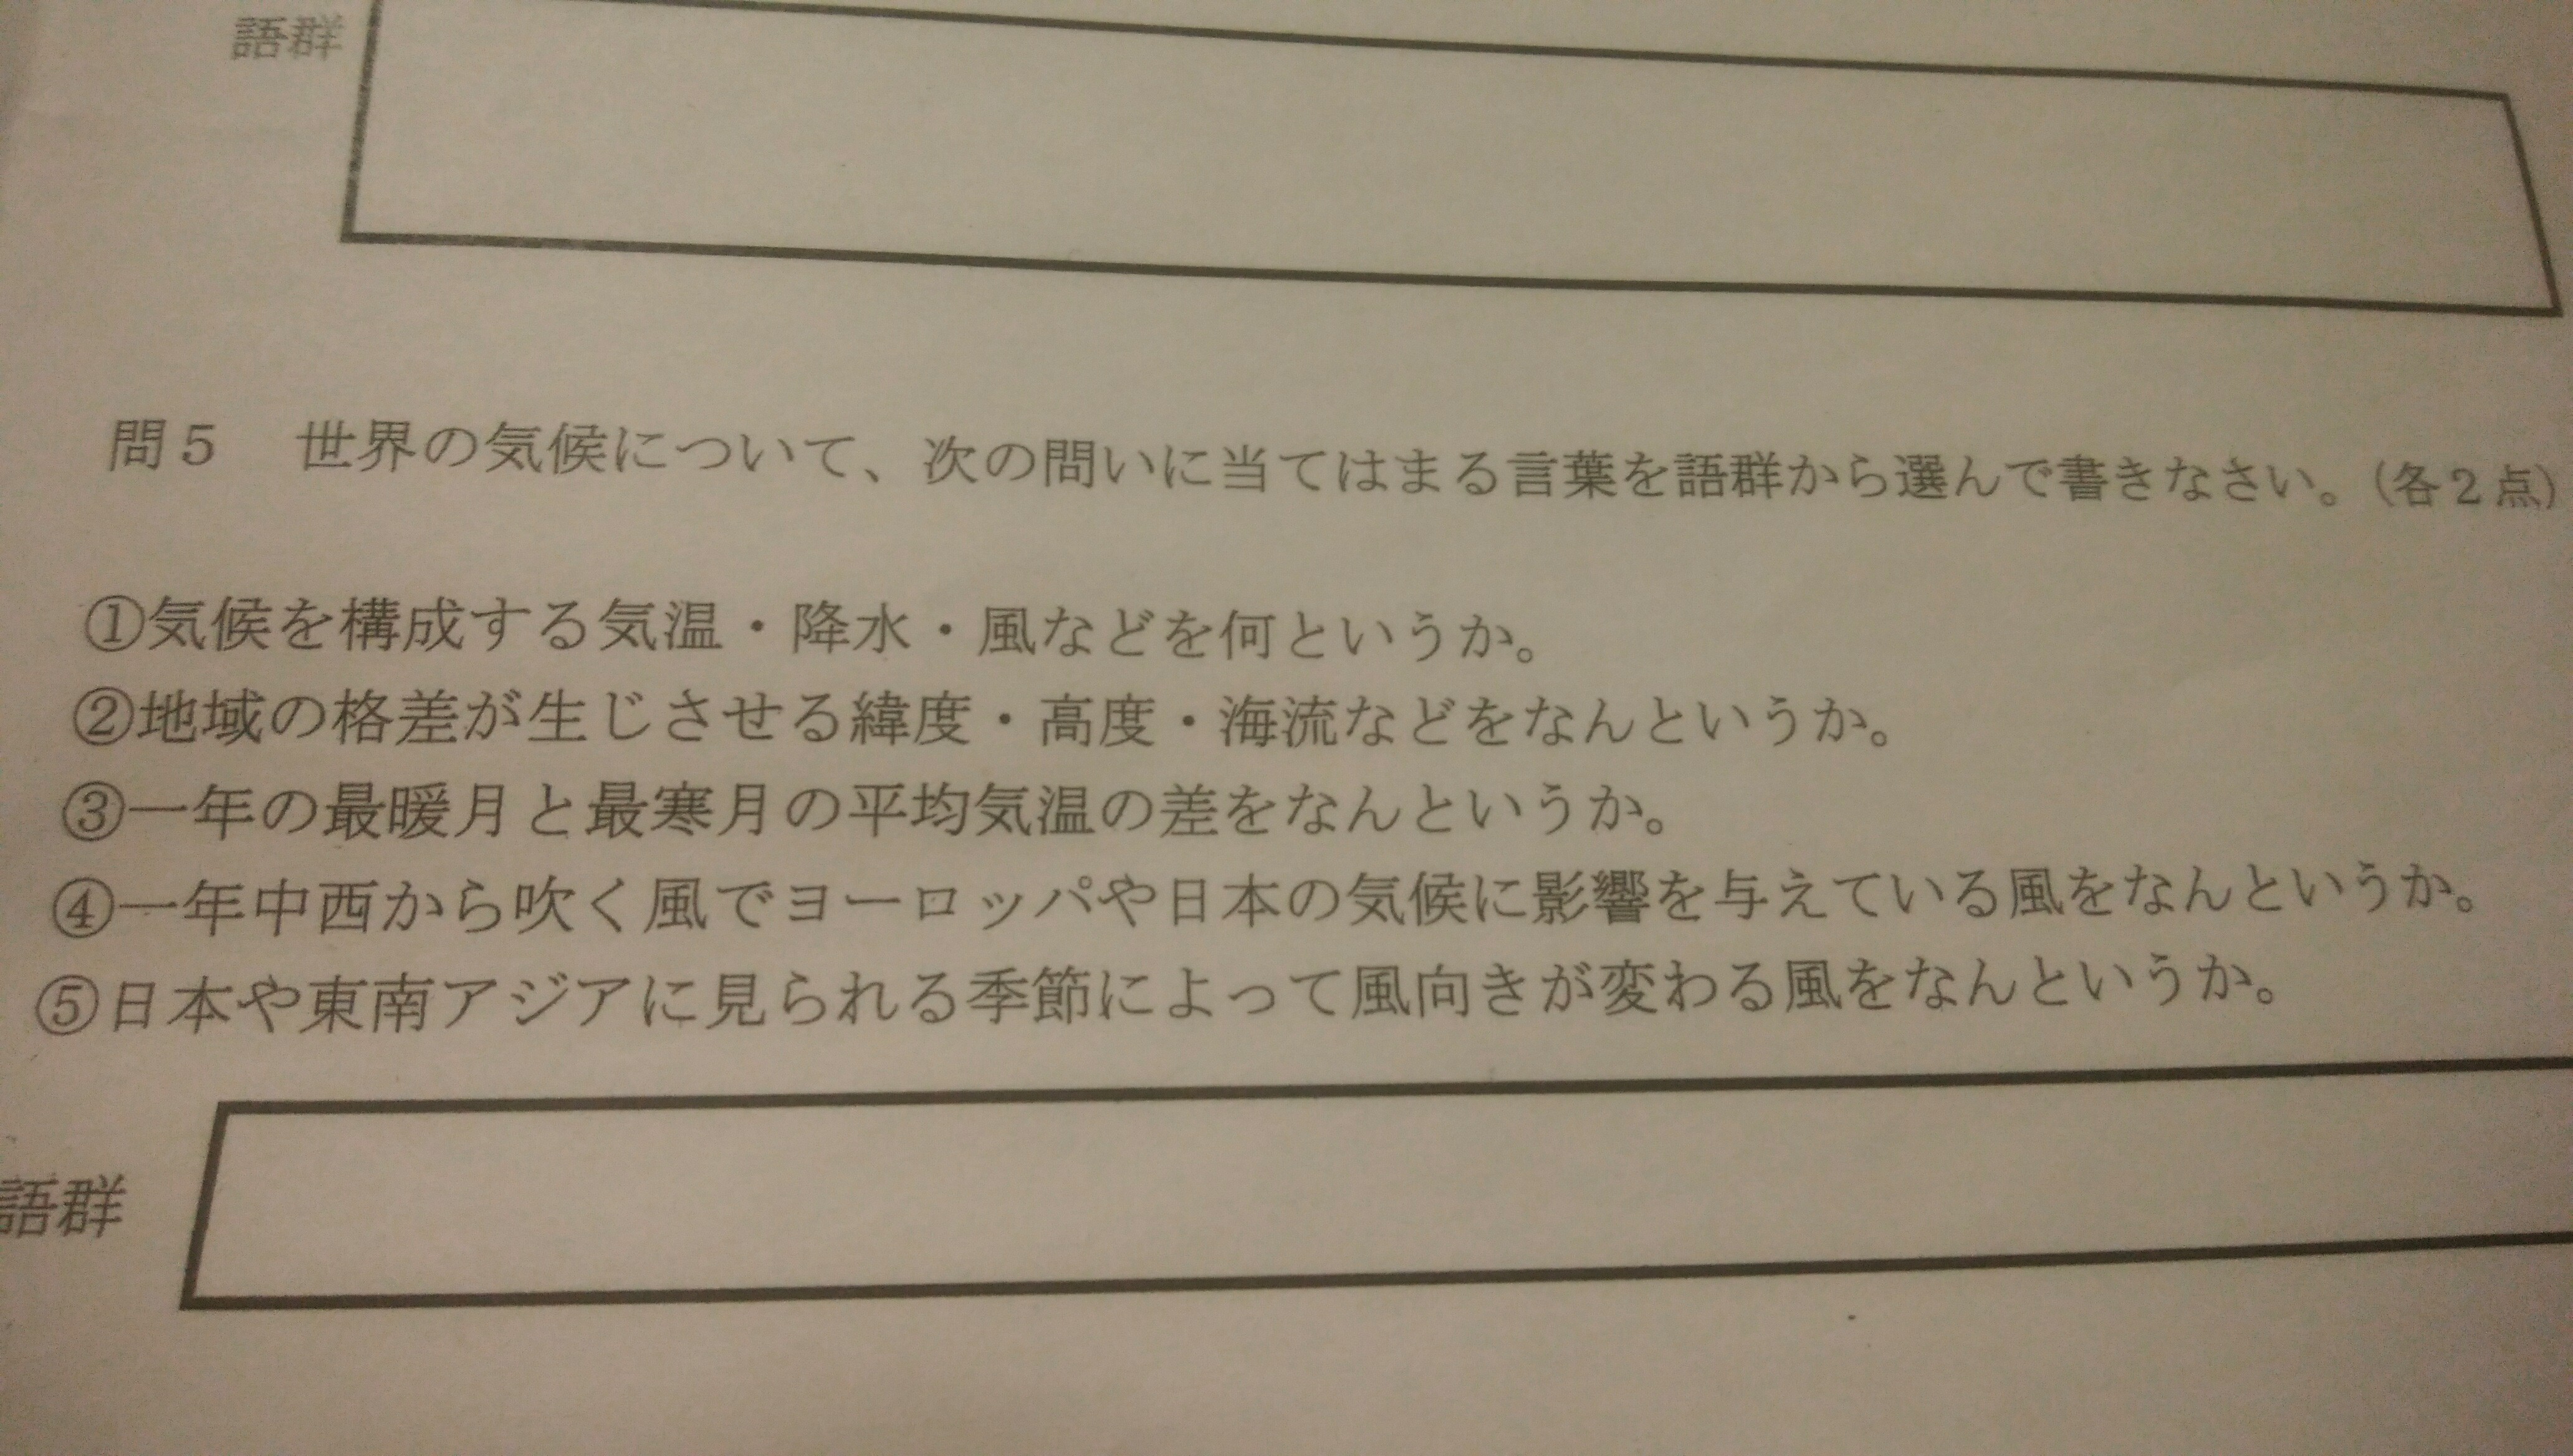 語群
問５　世界の気候について、次の問いに当てはまる言葉を語群から選んで書きなさい。（各２点）
①気候を構成する気温・降水・風などを何というか。
②地域の格差が生じさせる緯度・高度・海流などをなんというか。
③一年の最暖月と最寒月の平均気温の差をなんというか。
④一年中西から吹く風でヨーロッパや日本の気候に影響を与えている風をなんというか。
⑤日本や東南アジアに見られる季節によって風向きが変わる風をなんというか。
語群